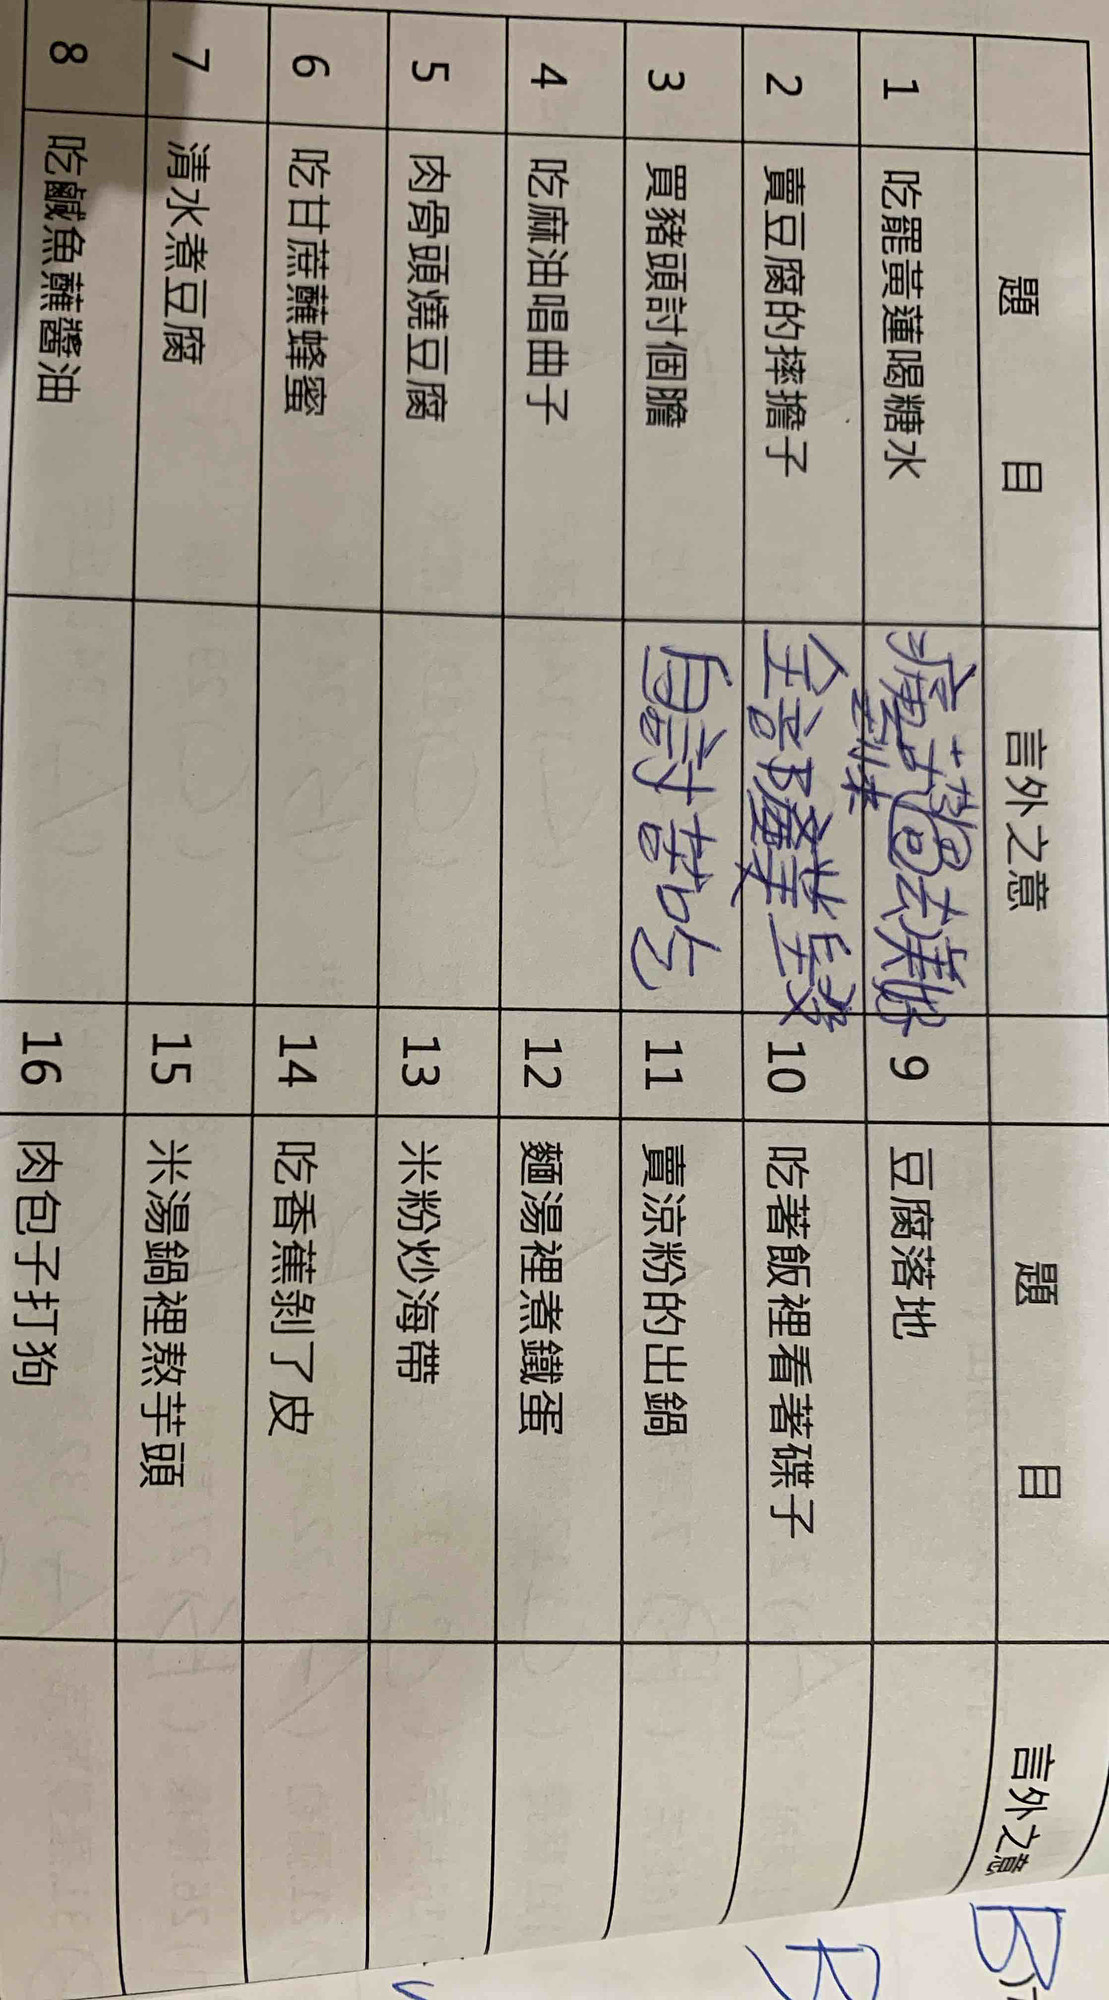 題目 言外之意 題目 言外之意
1 吃罷黃蓮喝糖水 9 豆腐落地
2 賣豆腐的摔擔子 10 吃著飯裡看著碟子
3 買豬頭討個膽 自討苦吃 11 賣涼粉的出鍋
4 吃麻油唱曲子 12 麵湯裡煮鐵蛋
5 肉骨頭燒豆腐 13 米粉炒海帶
6 吃甘蔗蘸蜂蜜 14 吃香蕉剝了皮
7 清水煮豆腐 15 米湯鍋裡熬芋頭
8 吃鹹魚蘸醬油 16 肉包子打狗
B
B